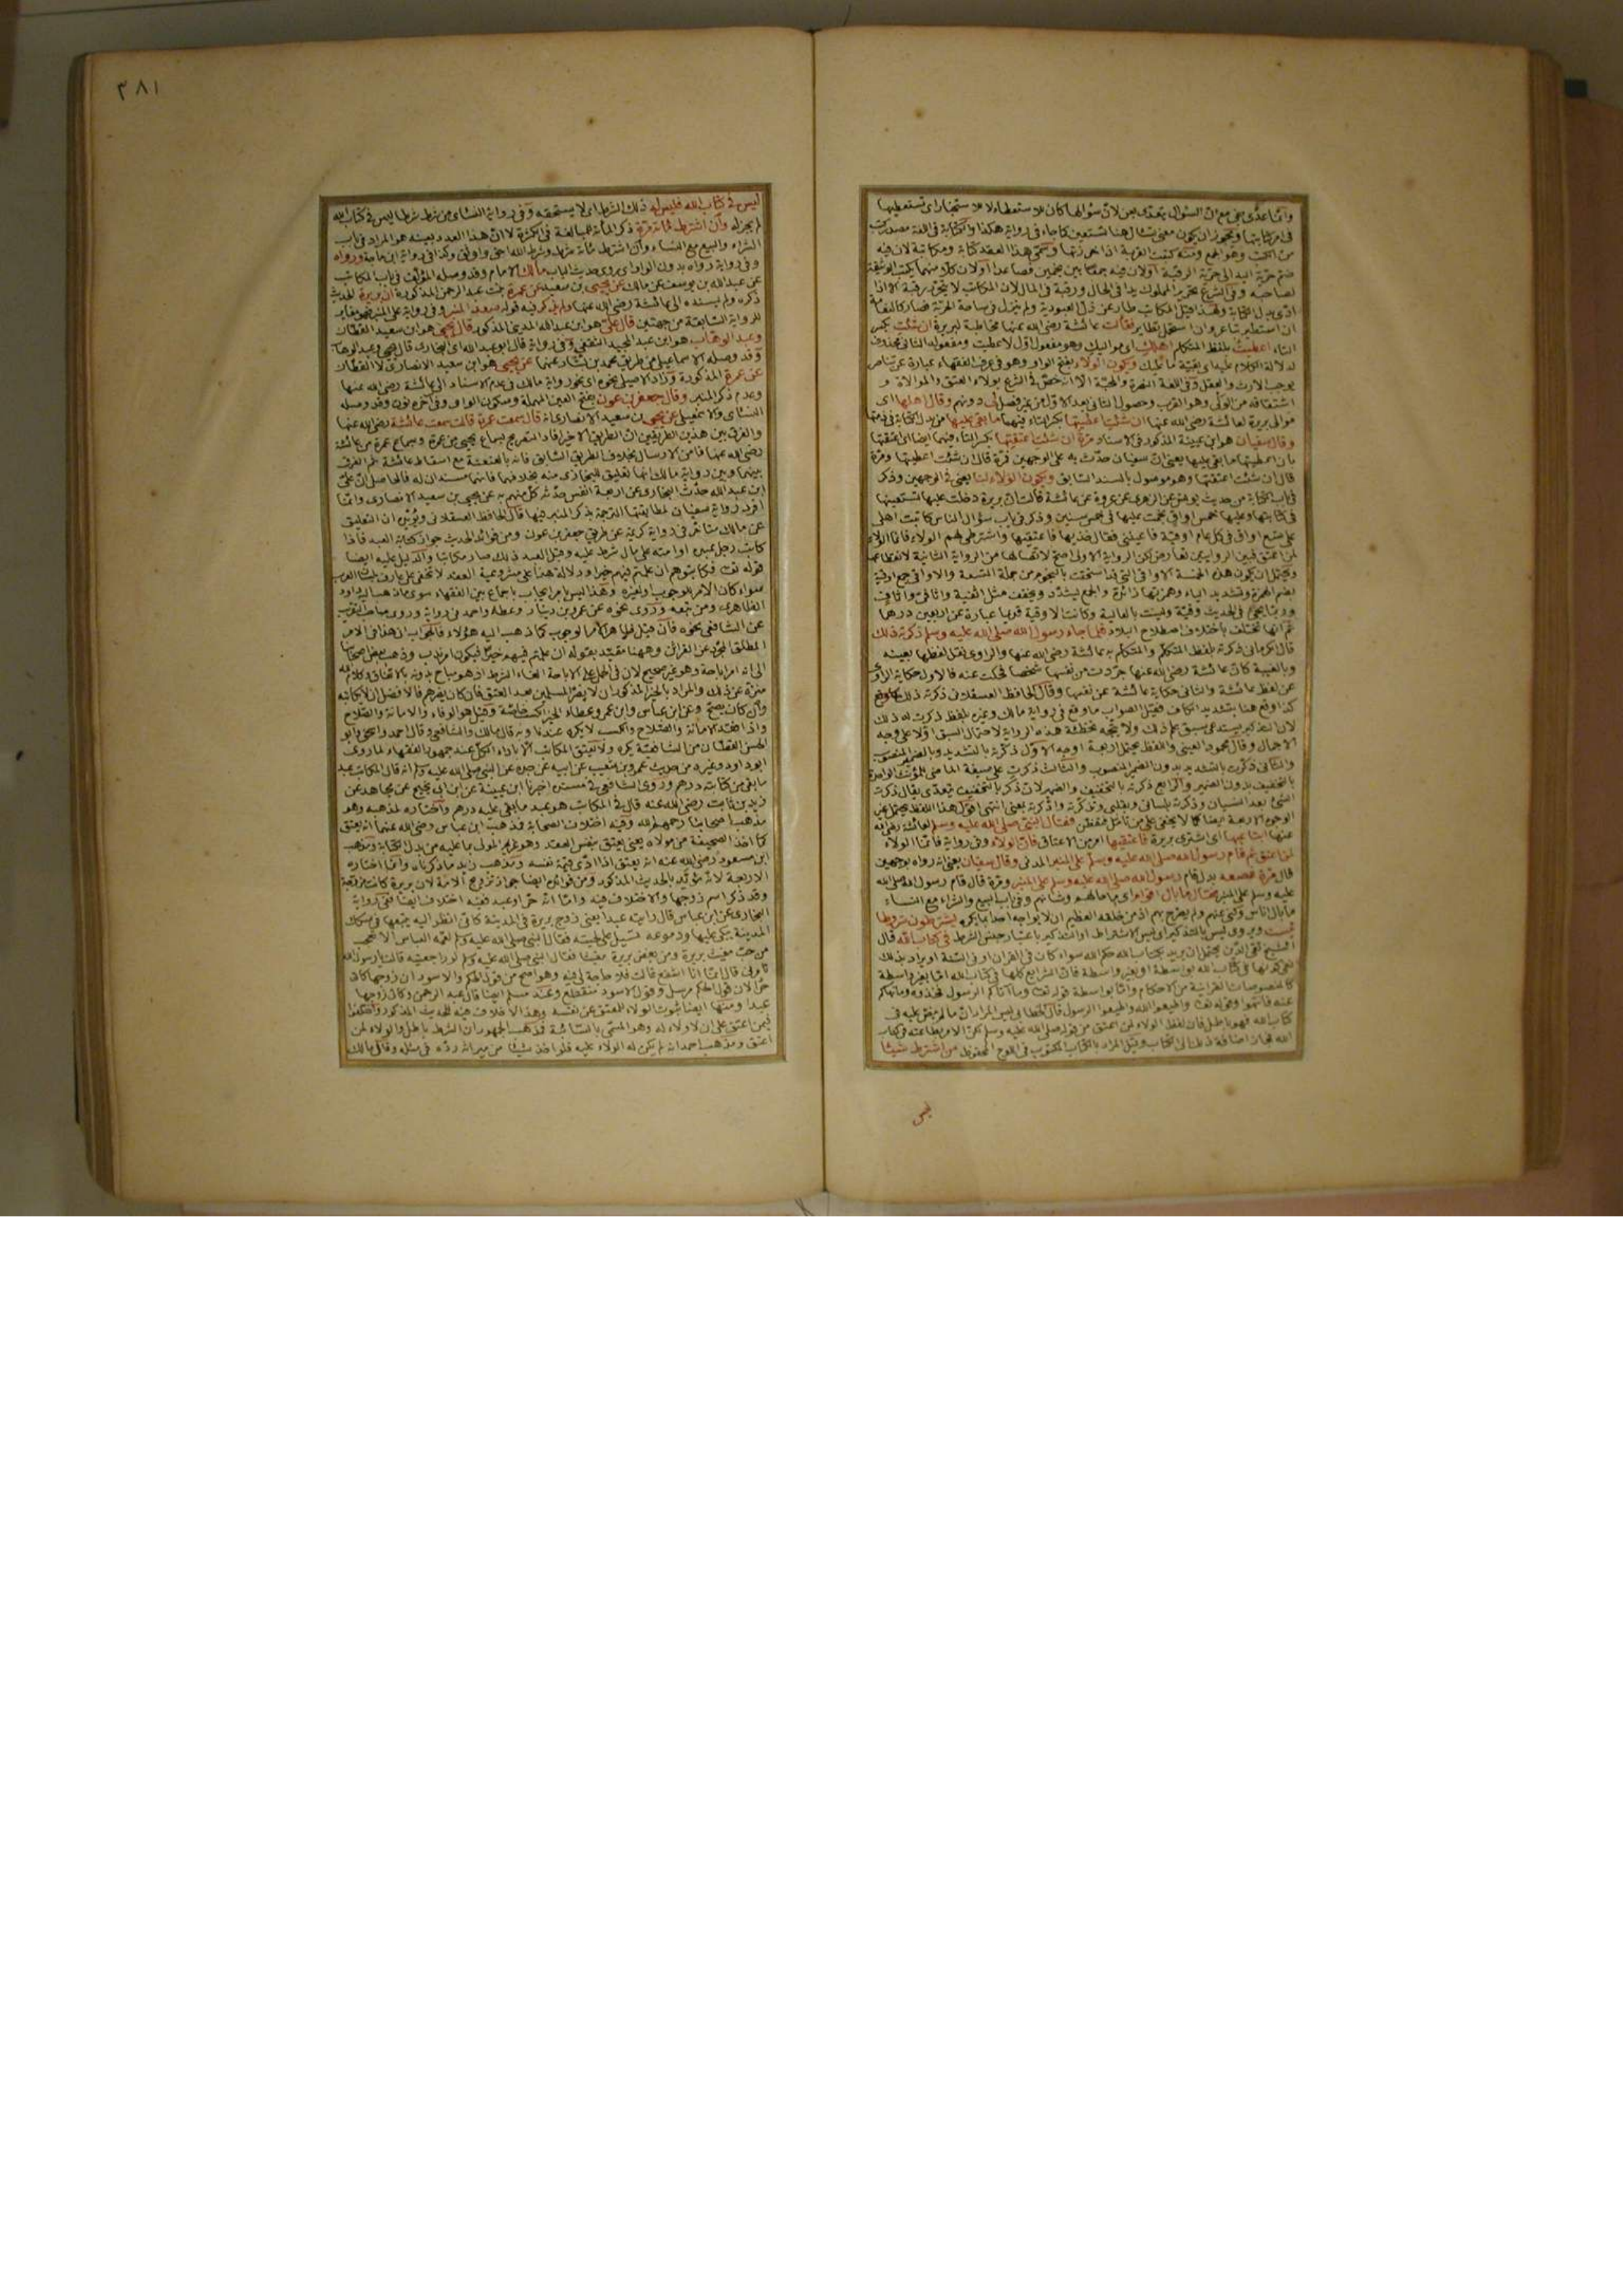 وانما عدى بفي مع ان السؤال يتعدى بعن لان سؤالها كان للاستعطاء لا للاستخبار اى تستعطيها
فى امر كتابتها ويجوز ان يكون معنى تسأل هنا تستعين كما جاء فى رواية هكذا والكتابة فى اللغة مصدر كتب
من الكتب وهو الجمع ومنه كتبت القربة اذا خرزتها وسمى هذا العقد كتابة ومكاتبة لان فيه
ضم حرية اليد الى حرية الرقبة او لان فيه جمعا بين نجمين فصاعدا او لان كلا منهما يكتب الوثيقة
لصاحبه وفى الشرع تحرير المملوك يدا فى الحال ورقبة فى المآل لان المكاتب لا يتحرر رقبة الا اذا
ادى بدل الكتابة ولهذا قيل المكاتب طار عن ذل العبودية ولم ينزل فى ساحة الحرية فصار كالنعامة
ان استطير تباعر وان استحمل تطاير فقالت عائشة رضى الله عنها مخاطبة لبريرة ان شئت بكسر
التاء اعطيت بلفظ المتكلم اهلك اى مواليك وهو مفعول اول لاعطيت ومفعوله الثانى محذوف
لدلالة الكلام عليه اى بقية ما عليك ويكون الولاء بفتح الواو وهو فى عرف الفقهاء عبارة عن تناصر
يوجب الارث والعقل وفى اللغة النصرة والمحبة الا انه خص فى الشرع بولاء العتق والموالاة و
اشتقاقه من الولى وهو القرب وحصول الثانى بعد الاول من غير فصل لى دونهم وقال اهلها اى
موالى بريرة لعائشة رضى الله عنها ان شئت اعطيتها بكسر التاء فيهما ما بقى عليها من بدل الكتابة فى ذمتها
وقال سفيان هو ابن عيينة المذكور فى الاسناد مرة ان شئت اعتقتها بكسر التاء فيهما ايضا اى اعتقتها
بان اعطيتها ما بقى عليها يعنى ان سفيان حدث به على الوجهين فمرة قال ان شئت اعطيتها ومرة
قال ان شئت اعتقتها وهو موصول بالسند السابق ويكون الولاء لنا يعنى فى الوجهين وذكر
فى باب الكتابة من حديث يونس عن الزهرى عن عروة عن عائشة قالت ان بريرة دخلت عليها تستعينها
فى كتابتها وعليها خمس اواقى نجمت عليها فى خمس سنين وذكر فى باب سؤال الناس كاتبت اهلى
على تسع اواق فى كل عام اوقية فاعينينى فقال خذيها فاعتقيها واشترطى لهم الولاء فانما الولاء
لمن اعتق فبين الروايتين تعارض لكن الرواية الاولى اصح لاتصالها من الرواية الثانية لانقطاعها
ويحتمل ان يكون هذه الخمسة الاواقى التى قد استحقت بالنجوم من جملة التسعة والاواقى جمع اوقية
بضم الهمزة وتشديد الياء وهمزتها زائدة والجمع يشدد ويخفف مثل اثفية واثافى واثاف
وربما يجىء فى الحديث وقية وليست بالعالية وكانت الاوقية قديما عبارة عن اربعين درهما
ثم انها تختلف باختلاف اصطلاح البلاد فلما جاء رسول الله صلى الله عليه وسلم ذكرته ذلك
قال الكرمانى ذكرته بلفظ المتكلم والمتكلم به عائشة رضى الله عنها والراوى نقل لفظها بعينه
وبالغيبة كان عائشة رضى الله عنها جردت من نفسها شخصا فحكت عنه فالاول حكاية الراوى
عن لفظ عائشة والثانى حكاية عائشة عن نفسها وقال الحافظ العسقلانى ذكرته ذلك
كذا وقع هنا بتشديد الكاف فقيل الصواب ما وقع فى رواية مالك وغيره بلفظ ذكرت له ذلك
لان التذكير يستدعى سبق علم ذلك ولا يتجه تخطئة هذه الرواية لاحتمال السبق اولا على وجه
الاجمال وقال محمود العينى واللفظ يحتمل اربعة اوجه الاول ذكرته بالتشديد وبالضمير المنصوب
والثانى ذكرت بالتشديد بدون الضمير المنصوب والثالث ذكرت على صيغة الماضى للمؤنث الواحدة
بالتخفيف بدون الضمير والرابع ذكرته بالتخفيف والضمير لان ذكر بالتخفيف يتعدى يقال ذكرت
الشئ بعد النسيان وذكرته بلسانى وبقلبى وتذكرته واذكرته بمعنى انتهى
الوجوه الاربعة ايضا كما لا يخفى على من تأمل فتفطن فقال النبى صلى الله عليه وسلم لعائشة رضى الله
عنها ابتاعيها اى اشترى بريرة فاعتقيها امر من الاعتاق فان الولاء وفى رواية فانما الولاء
لمن اعتق ثم قام رسول الله صلى الله عليه وسلم على المنبر المدنى وقال سفيان يعنى انه رواه بوجهين
قال مرة فصعد بدل قام رسول الله صلى الله عليه وسلم على المنبر ومرة قال قام رسول الله صلى الله
عليه وسلم على المنبر فقال ما بال اقوام اى ما حالهم وشانهم وفى باب البيع والشراء مع النساء
ما بال اناس وكنى عنهم ولم يصرح بهم اذ من خلقه العظيم ان لا يواجه احدا بما يكره يشترطون شروطا
ليست ويروى ليس بالتذكير اى ليس الاشتراط او التذكير باعتبار جنس الشرط فى كتاب الله قال
الشيخ تقى الدين يحتمل ان يريد بكتاب الله حكم الله سواء كان فى القران او فى السنة او يراد بذلك
نفى كونها فى كتاب الله بواسطة او بغير واسطة فان الشرايع كلها فى كتاب الله اما بغير واسطة
كالمنصوصات القرانية من الاحكام واما بواسطة قوله تعالى وما آتاكم الرسول فخذوه وما نهاكم
عنه فانتهوا وقوله تعالى واطيعوا الله واطيعوا الرسول قال الخطابى ليس المراد ان ما لم ينص عليه فى
كتاب الله فهو باطل فان لفظ الولاء لمن اعتق من قوله صلى الله عليه وسلم لكن الامر بطاعته فى كتاب
الله فجاز اضافة ذلك الى الكتاب وقيل المراد بالكتاب المكتوب فى اللوح المحفوظ من اشترط شيئا
ليس
٣٨١
ليس فى كتاب الله فليس له ذلك الشرط اى لا يستحقه وفى رواية النسائى من شرط شرطا ليس فى كتاب الله
لم يجز له وان اشترط مائة مرة ذكر المائة للمبالغة فى الكثرة لا ان هذا العدد بعينه هو المراد فى باب
الشراء والبيع مع النساء وان اشترط مائة شرط وشرط الله احق واوثق وكذا فى رواية ابن ماجة ورواه
وفى رواية رواه بدون الواو اى روى حديث الباب مالك الامام وقد وصله المؤلف فى باب المكاتب
عن عبد الله بن يوسف عن مالك عن يحيى بن سعيد عن عمرة بنت عبد الرحمن المذكورة ان بريرة الحديث
ذكره ولم يسنده الى عائشة رضى الله عنها ولم يذكر فيه قوله صعد المنبر وفى رواية على المنبر
للرواية السابقة من جهتين قال على هو ابن عبد الله المدينى المذكور قال يحيى هو ابن سعيد القطان
وعبد الوهاب هو ابن عبد المجيد الثقفى وفى رواية قال ابو عبد الله اى البخارى قال يحيى وعبد الوهاب
وقد وصله الاسماعيلى من طريق محمد بن بشار عنهما عن يحيى هو ابن سعيد الانصارى لا القطان
عن عمرة المذكورة وزاد الاصيلى نحوه اى نحو رواية مالك فى عدم الاسناد الى عائشة رضى الله عنها
وعدم ذكر المنبر وقال جعفر بن عون بفتح العين المهملة وسكون الواو وفى آخره نون وقد وصله
النسائى والاسمعيلى عن يحيى بن سعيد الانصارى انه قال سمعت عمرة قالت سمعت عائشة رضى الله عنها
والفرق بين هذين الطريقين ان الطريق الاخير افاد التصريح بسماع يحيى من عمرة وبسماع عمرة من عائشة
رضى الله عنها فامن الارسال بخلاف الطريق السابق فانه بالعنعنة مع اسقاط عائشة ثم الفرق
بينهما وبين رواية مالك انها تعليق للبخارى منه بخلافهما فانهما مسندان له فالحاصل ان على
ابن عبد الله حدث البخارى عن اربعة انفس حدثه كل منهم به عن يحيى بن سعيد الانصارى وانما
افرد رواية سفيان لمطابقتها الترجمة بذكر المنبر فيها قال الحافظ العسقلانى ويؤيده ان التعليق
عن مالك متأخر فى رواية كريمة عن طريق جعفر بن عون ومن فوائد الحديث جواز كتابة العبد فاذا
كاتب رجل عبده او امته على مال شرط عليه وقبل العبد ذلك صار مكاتبا والدليل عليه ايضا
قوله تعالى فكاتبوهم ان علمتم فيهم خيرا ودلالة هذا على مشروعية العقد لا تخفى على عارف بلسان العرب
سواء كان الامر للوجوب او لغيره وهذا ليس بامر ايجاب باجماع بين الفقهاء سوى ما ذهب اليه داود
الظاهرى ومن تبعه وروى نحوه عن عمرو بن دينار وعطاء واحمد فى رواية وروى صاحب التقريب
عن الشافعى نحوه فان قيل ظاهر الامر الوجوب كما ذهب اليه هؤلاء فالجواب ان هذا فى الامر
المطلق المجرد عن القرائن وههنا مقيد بقوله ان علمتم فيهم خيرا فيكون امر ندب وذهب بعض اصحابنا
الى انه امر اباحة وهو غير صحيح لان فى الحمل على الاباحة الغاء الشرط اذ هو مباح بدونه بالاتفاق وكلام الله
منزه عن ذلك والمراد بالخير المذكور ان لا يضر المسلمين بعد العتق فان كان يضرهم فالافضل ان لا يكاتبه
وان كان يصح وعن ابن عباس وابن عمر وعطاء الخير الكسب خاصة وقيل هو الوفاء والامانة والصلاح
واذا فقد الامانة والصلاح والكسب لا يكره عندنا وبه قال مالك والشافعى وقال احمد واسحق وابو
الحسن القطان من الشافعية يكره ولا يعتق المكاتب الا باداء الكل عند جمهور الفقهاء لما روى
ابو داود وغيره من حديث عمرو بن شعيب عن ابيه عن جده عن النبى صلى الله عليه وسلم انه قال المكاتب عبد
ما بقى من كتابته درهم وروى الشافعى فى مسنده اخبرنا ابن عيينة عن ابن ابى نجيح عن مجاهد عن
زيد بن ثابت رضى الله عنه قال فى المكاتب هو عبد ما بقى عليه درهم واختاره لمذهبه وهو
مذهب اصحابنا رحمهم الله وفيه اختلاف الصحابة فذهب ابن عباس رضى الله عنهما انه يعتق
كما اخذ الصحيفة من مولاه يعنى يعتق بنفس العقد وهو غريم المولى بما عليه من بدل الكتابة ومذهب
ابن مسعود رضى الله عنه انه يعتق اذا ادى قيمة نفسه ومذهب زيد ما ذكرناه وانما اختاره
الاربعة لانه مؤيد بالحديث المذكور ومن فوائده ايضا جواز تزوج الامة لان بريرة كانت مزوجة
وقد ذكر اسم زوجها والاختلاف فيه واما انه حر او عبد ففيه اختلاف ايضا ففى رواية
البخارى عن ابن عباس قال رأيته عبدا يعنى زوج بريرة فى المدينة كانى انظر اليه يتبعها فى سكك
المدينة يبكى عليها ودموعه تسيل على لحيته فقال النبى صلى الله عليه وسلم لعمه العباس الا تعجب
من حب مغيث بريرة ومن بغض بريرة مغيثا فقال النبى صلى الله عليه وسلم لو راجعتيه قالت يا رسول الله
تأمرنى قال انما انا اشفع قالت فلا حاجة لى فيه وهو اصح من قول الحكم والاسود ان زوجها كان
حرا لان قول الحكم مرسل وقول الاسود منقطع وعند مسلم ايضا قال عبد الرحمن وكان زوجها
عبدا ومنها ايضا ثبوت الولاء للمعتق عن نفسه وهذا لا خلاف فيه للحديث المذكور واختلفوا
فيمن اعتق على ان لا ولاء له وهو المسمى بالسائبة فذهب الجمهور ان الشرط باطل والولاء لمن
اعتق ومذهب احمد انه لم يكن له الولاء عليه فلو اخذ شيئا من ميراثه رده فى مثله وقال مالك